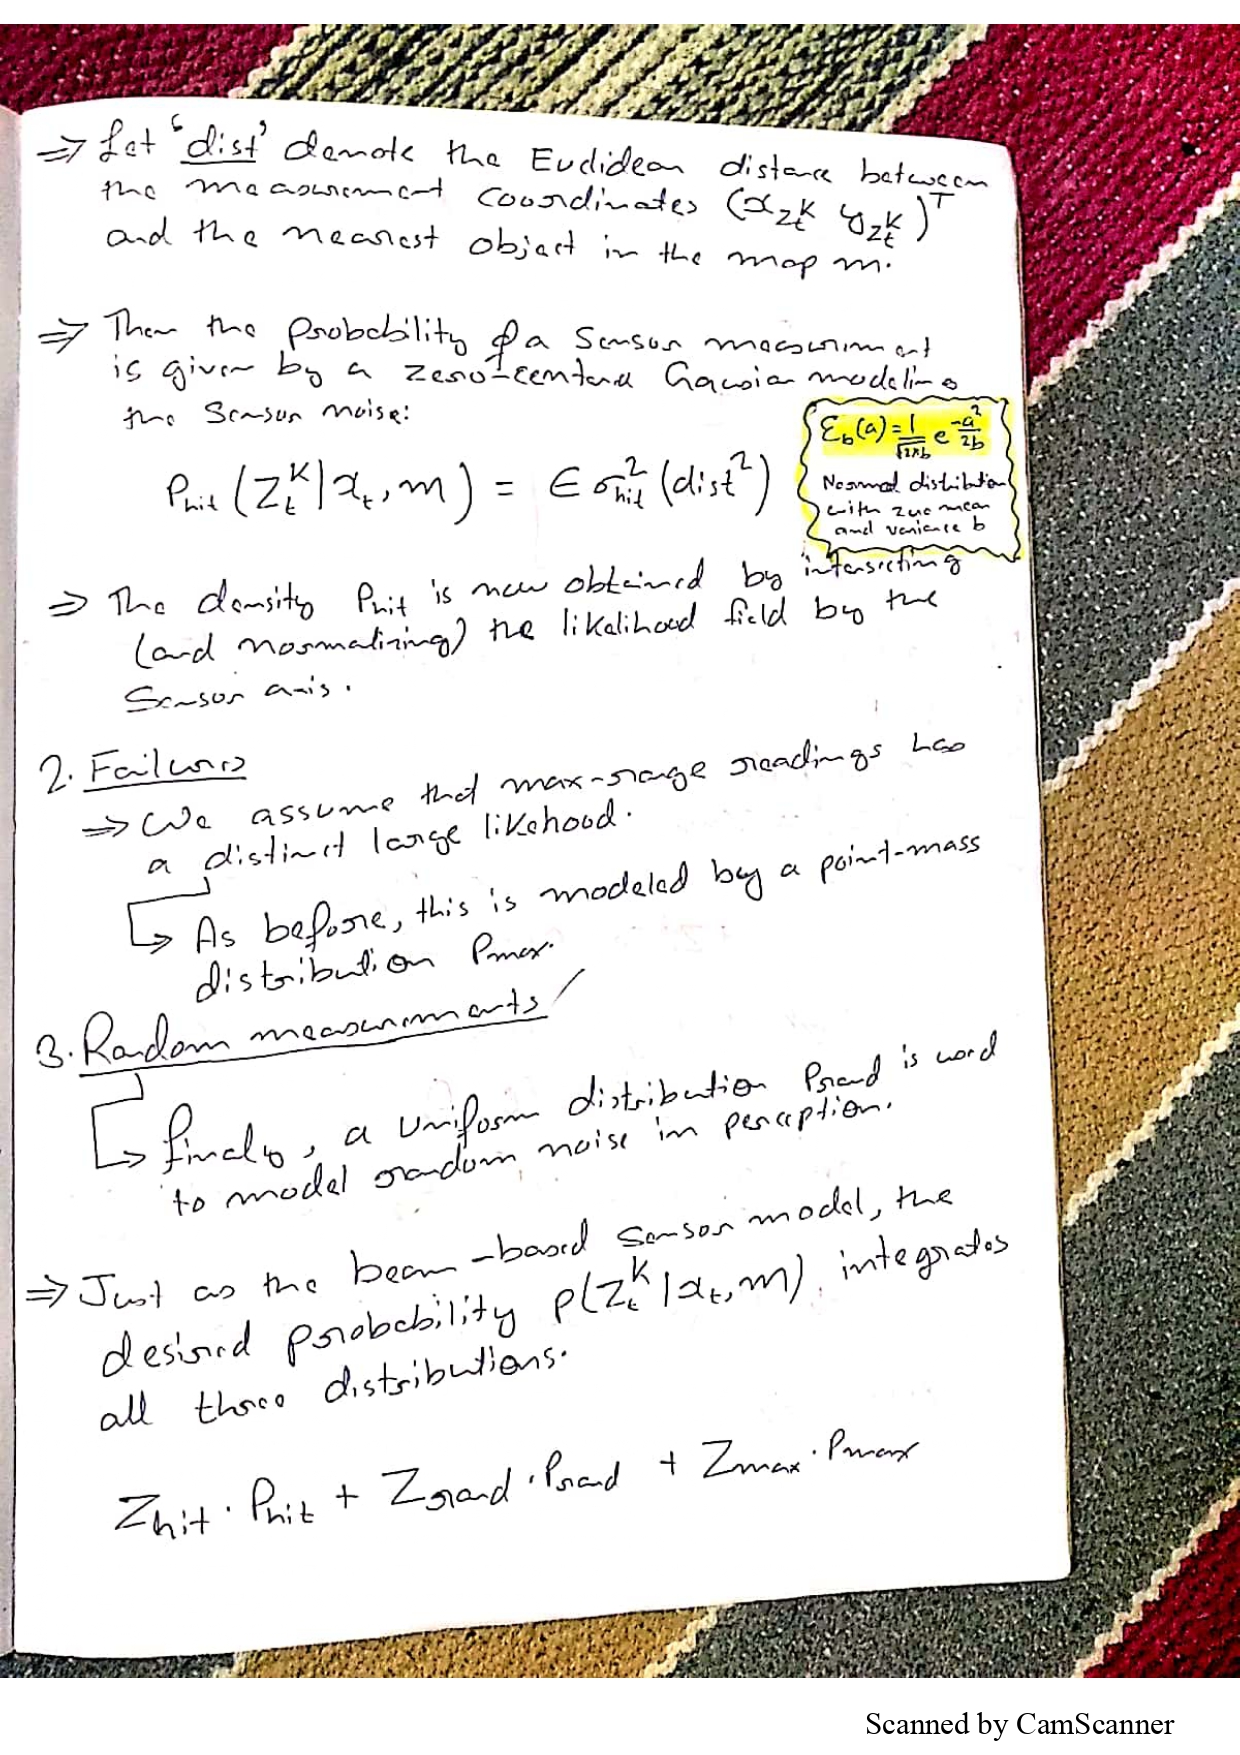 ⇒ Let 'dist' denote the Euclidean distance between
the measurement coordinates (x_{z_t^k} y_{z_t^k})^T
and the nearest object in the map m.
⇒ Then the probability of a Sensor measurement
is given by a zero-centered Gaussian modeling
the Sensor noise:
P_hit (Z_t^k | x_t, m) = ε σ_hit^2 (dist^2)
ε_b(a) = 1/√(2πb) e^{-a^2/2b}
Normal distribution
with zero mean
and variance b
⇒ The density P_hit is now obtained by intersecting
(and normalizing) the likelihood field by the
Sensor axis.
2. Failures
⇒ We assume that max-range readings has
a distinct large likehood.
↳ As before, this is modeled by a point-mass
distribution P_max.
3. Random measurements
↳ finally, a uniform distribution P_rand is used
to model random noise in perception.
⇒ Just as the beam-based sensor model, the
desired probability p(Z_t^k | x_t, m) integrates
all three distributions.
Z_hit · P_hit + Z_rand · P_rand + Z_max · P_max
Scanned by CamScanner